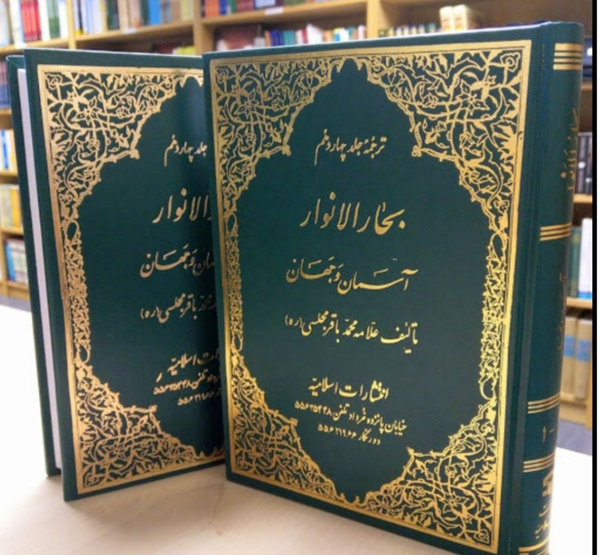 ترجمهٔ جلد چهاردهم
بحار الانوار
آسمان و جهان
تألیف علامه محمد باقر مجلسی (ره)
انتشارات اسلامیه
خیابان پانزده خرداد تلفن ۵۵۶۳۵۴۴۸
دورنگار ۵۵۶۲۱۹۶۶
جلد چهاردهم
الانوار
آسمان و جهان
محمد باقر مجلسی (ره)
اسلامیه